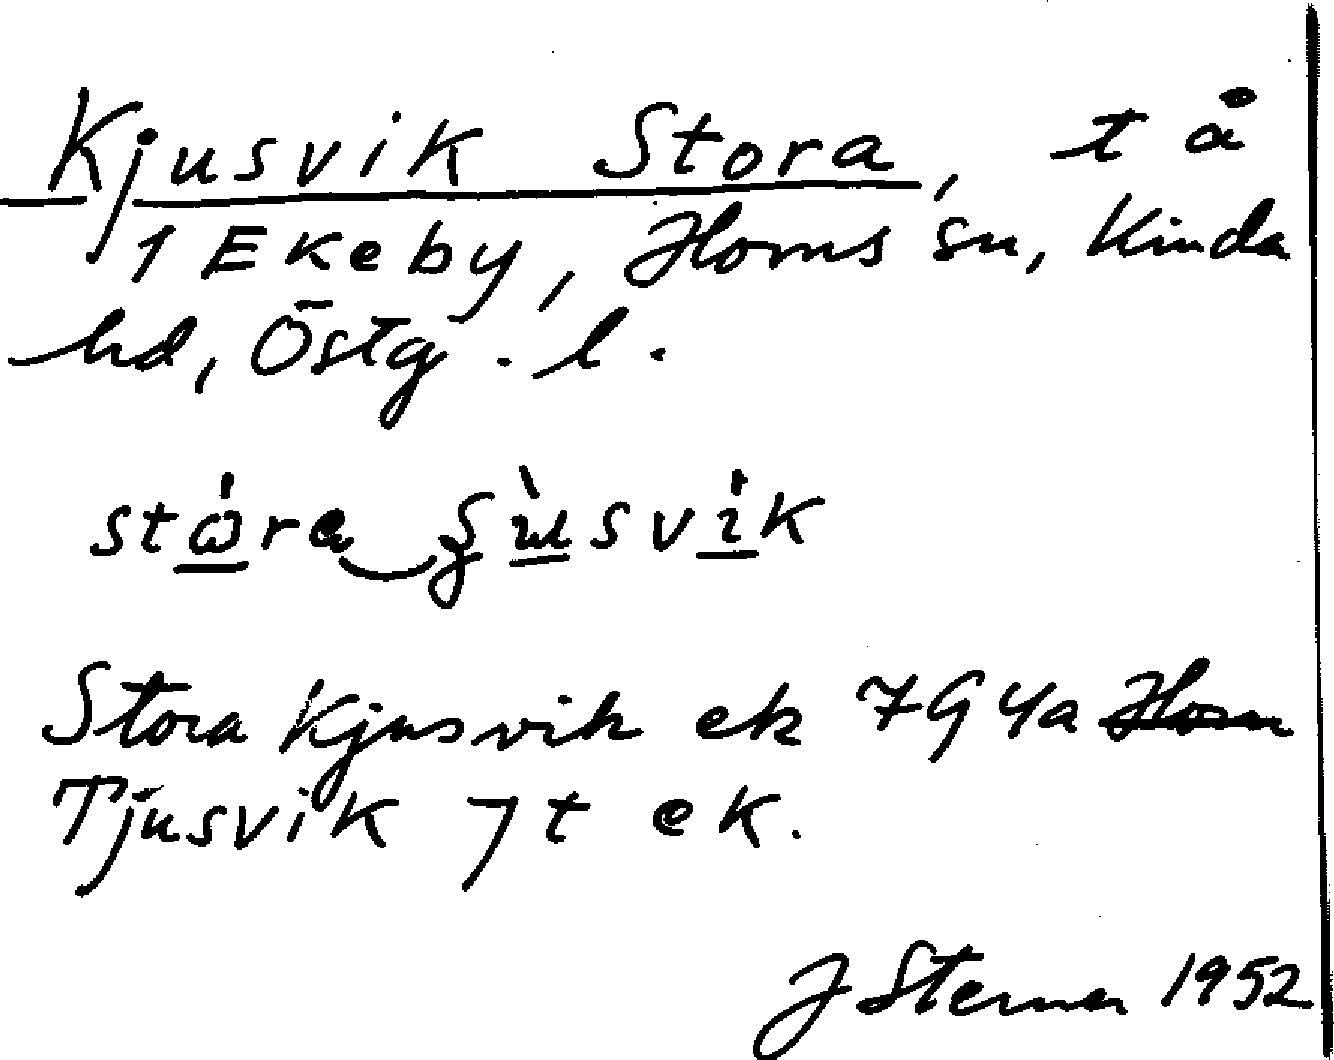 Kjusvik Stora, t å
1 Ekeby, Horns sn, Kinda
hd, Östg. l.
Stora Kjusvik ek 7G4a Horn
Tjusvik 7t ek.
J Sterner 1952